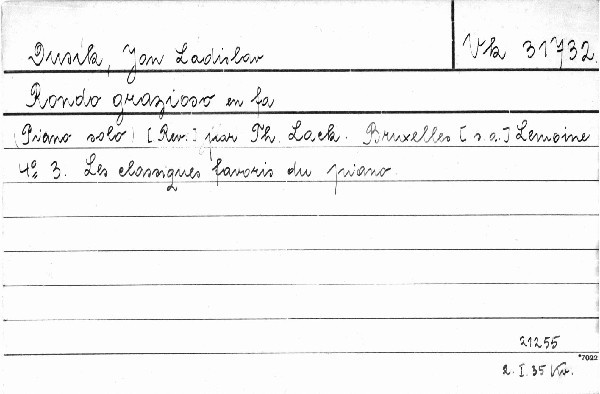 Dusík, Jan Ladislav
Vk 31732.
Rondo grazioso en fa
(Piano solo) [Rev.] par Th. Lack. Bruxelles [s.a.] Lemoine
4° 3. Les classiques favoris du piano.
21255
*7022
2. I. 35 Kv.